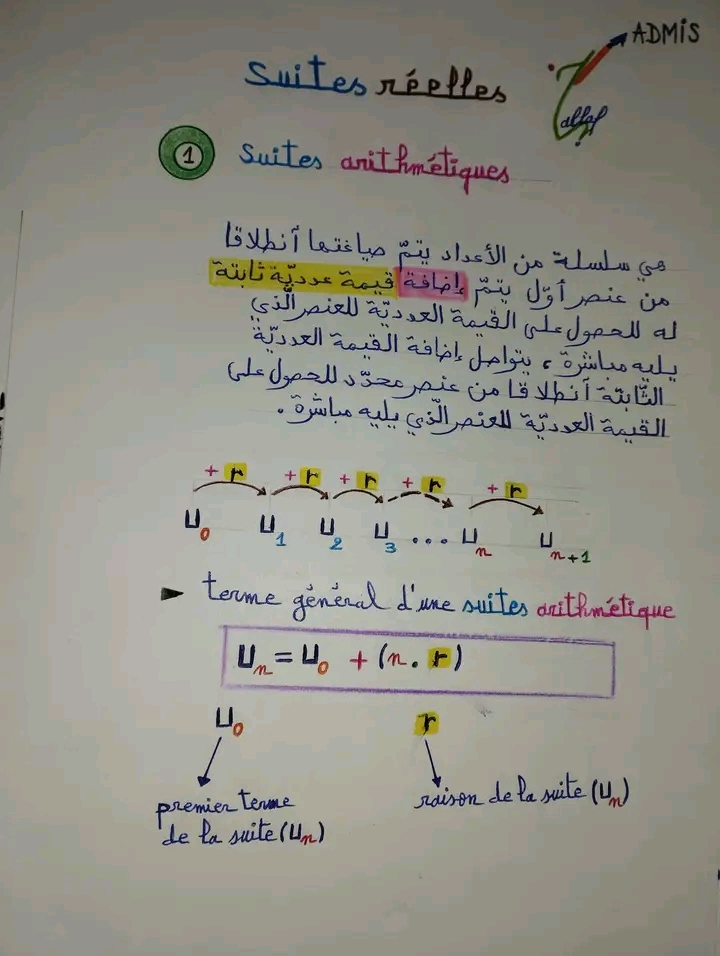 ADMiS
Suites réelles
1 Suites arithmétiques
هي سلسلة من الأعداد يتمّ صياغتها أنطلاقا
من عنصر أوّل يتمّ إضافة قيمة عدديّة ثابتة
له للحصول على القيمة العدديّة للعنصر الّذي
يليه مباشرة ، يتواصل إضافة القيمة العدديّة
الثّابتة أنطلاقا من عنصر محدّد للحصول على
القيمة العدديّة للعنصر الّذي يليه مباشرة .
+ r + r + r + r + r
U0 U1 U2 U3 ... Un Un+1
terme général d'une suites arithmétique
Un = U0 + (n . r)
U0 r
premier terme
de la suite (Un)
raison de la suite (Un)